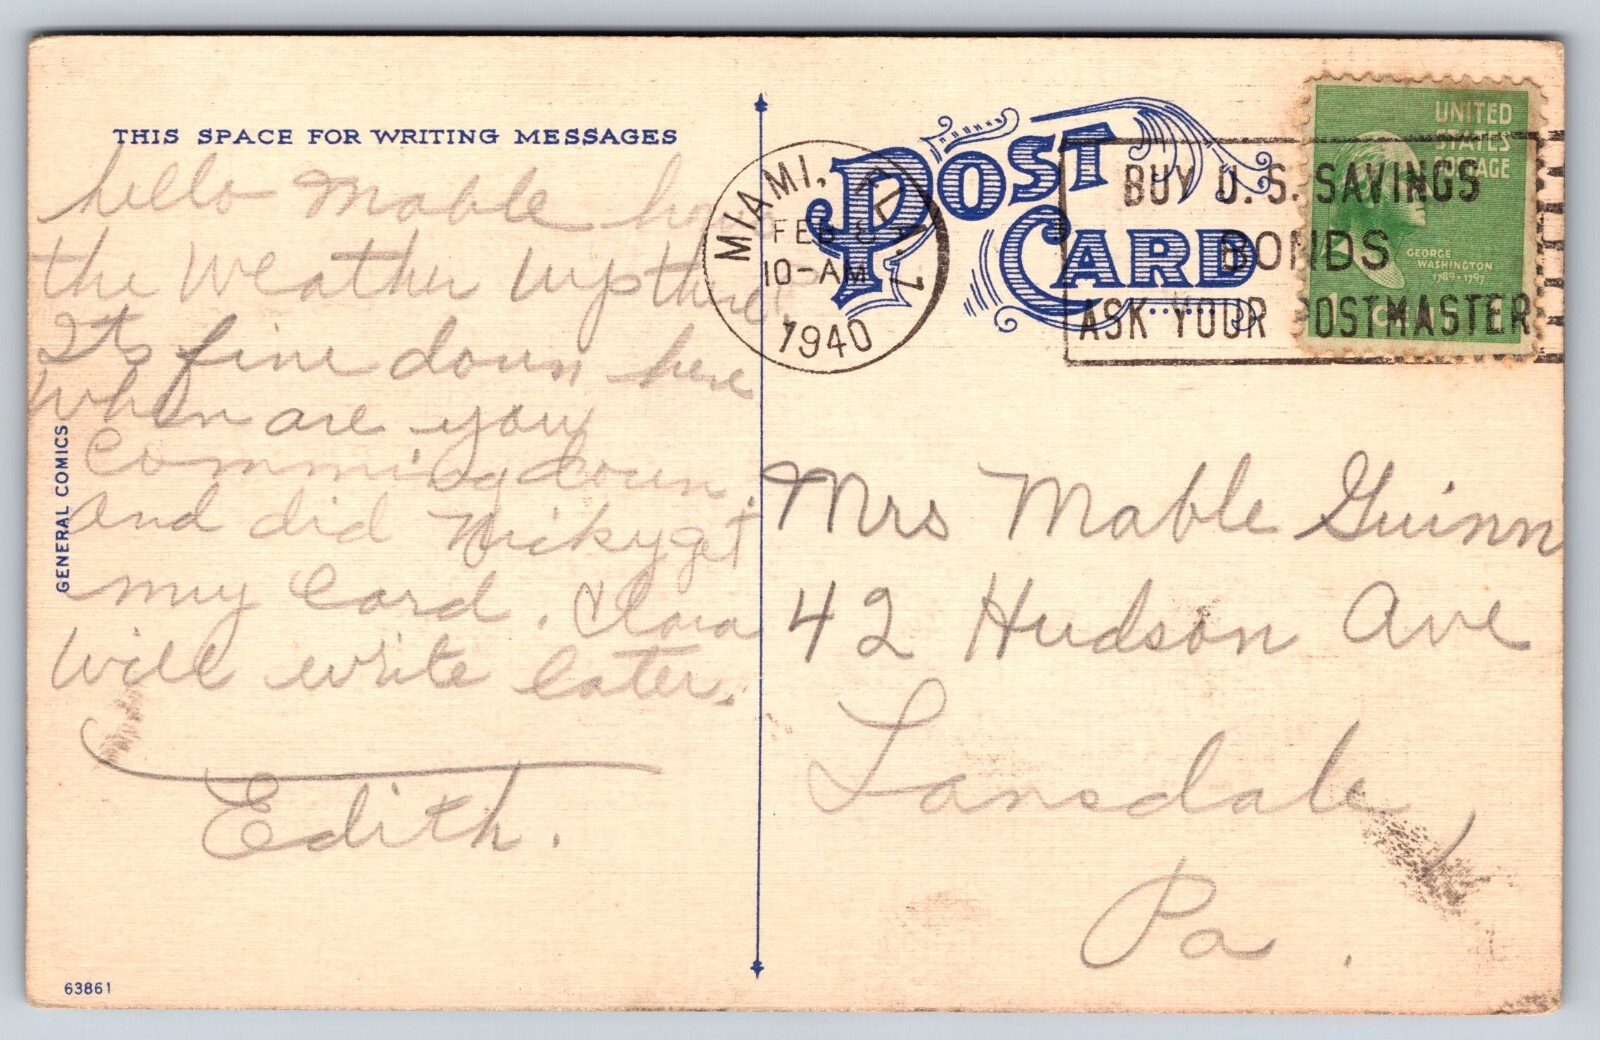 THIS SPACE FOR WRITING MESSAGES
hello Mable how
the Weather up there.
Its fine down here
When are you
Comming down.
And did Micky get
my Card. Clara
will write later.
Edith.
GENERAL COMICS
63861
POST CARD
MIAMI, FLA. 1
FEB 8
10-AM
1940
BUY U.S. SAVINGS
BONDS
ASK YOUR POSTMASTER
UNITED
STATES
POSTAGE
GEORGE
WASHINGTON
1789-1797
1 CENT
Mrs Mable Guinn
42 Hudson Ave
Lansdale,
Pa.